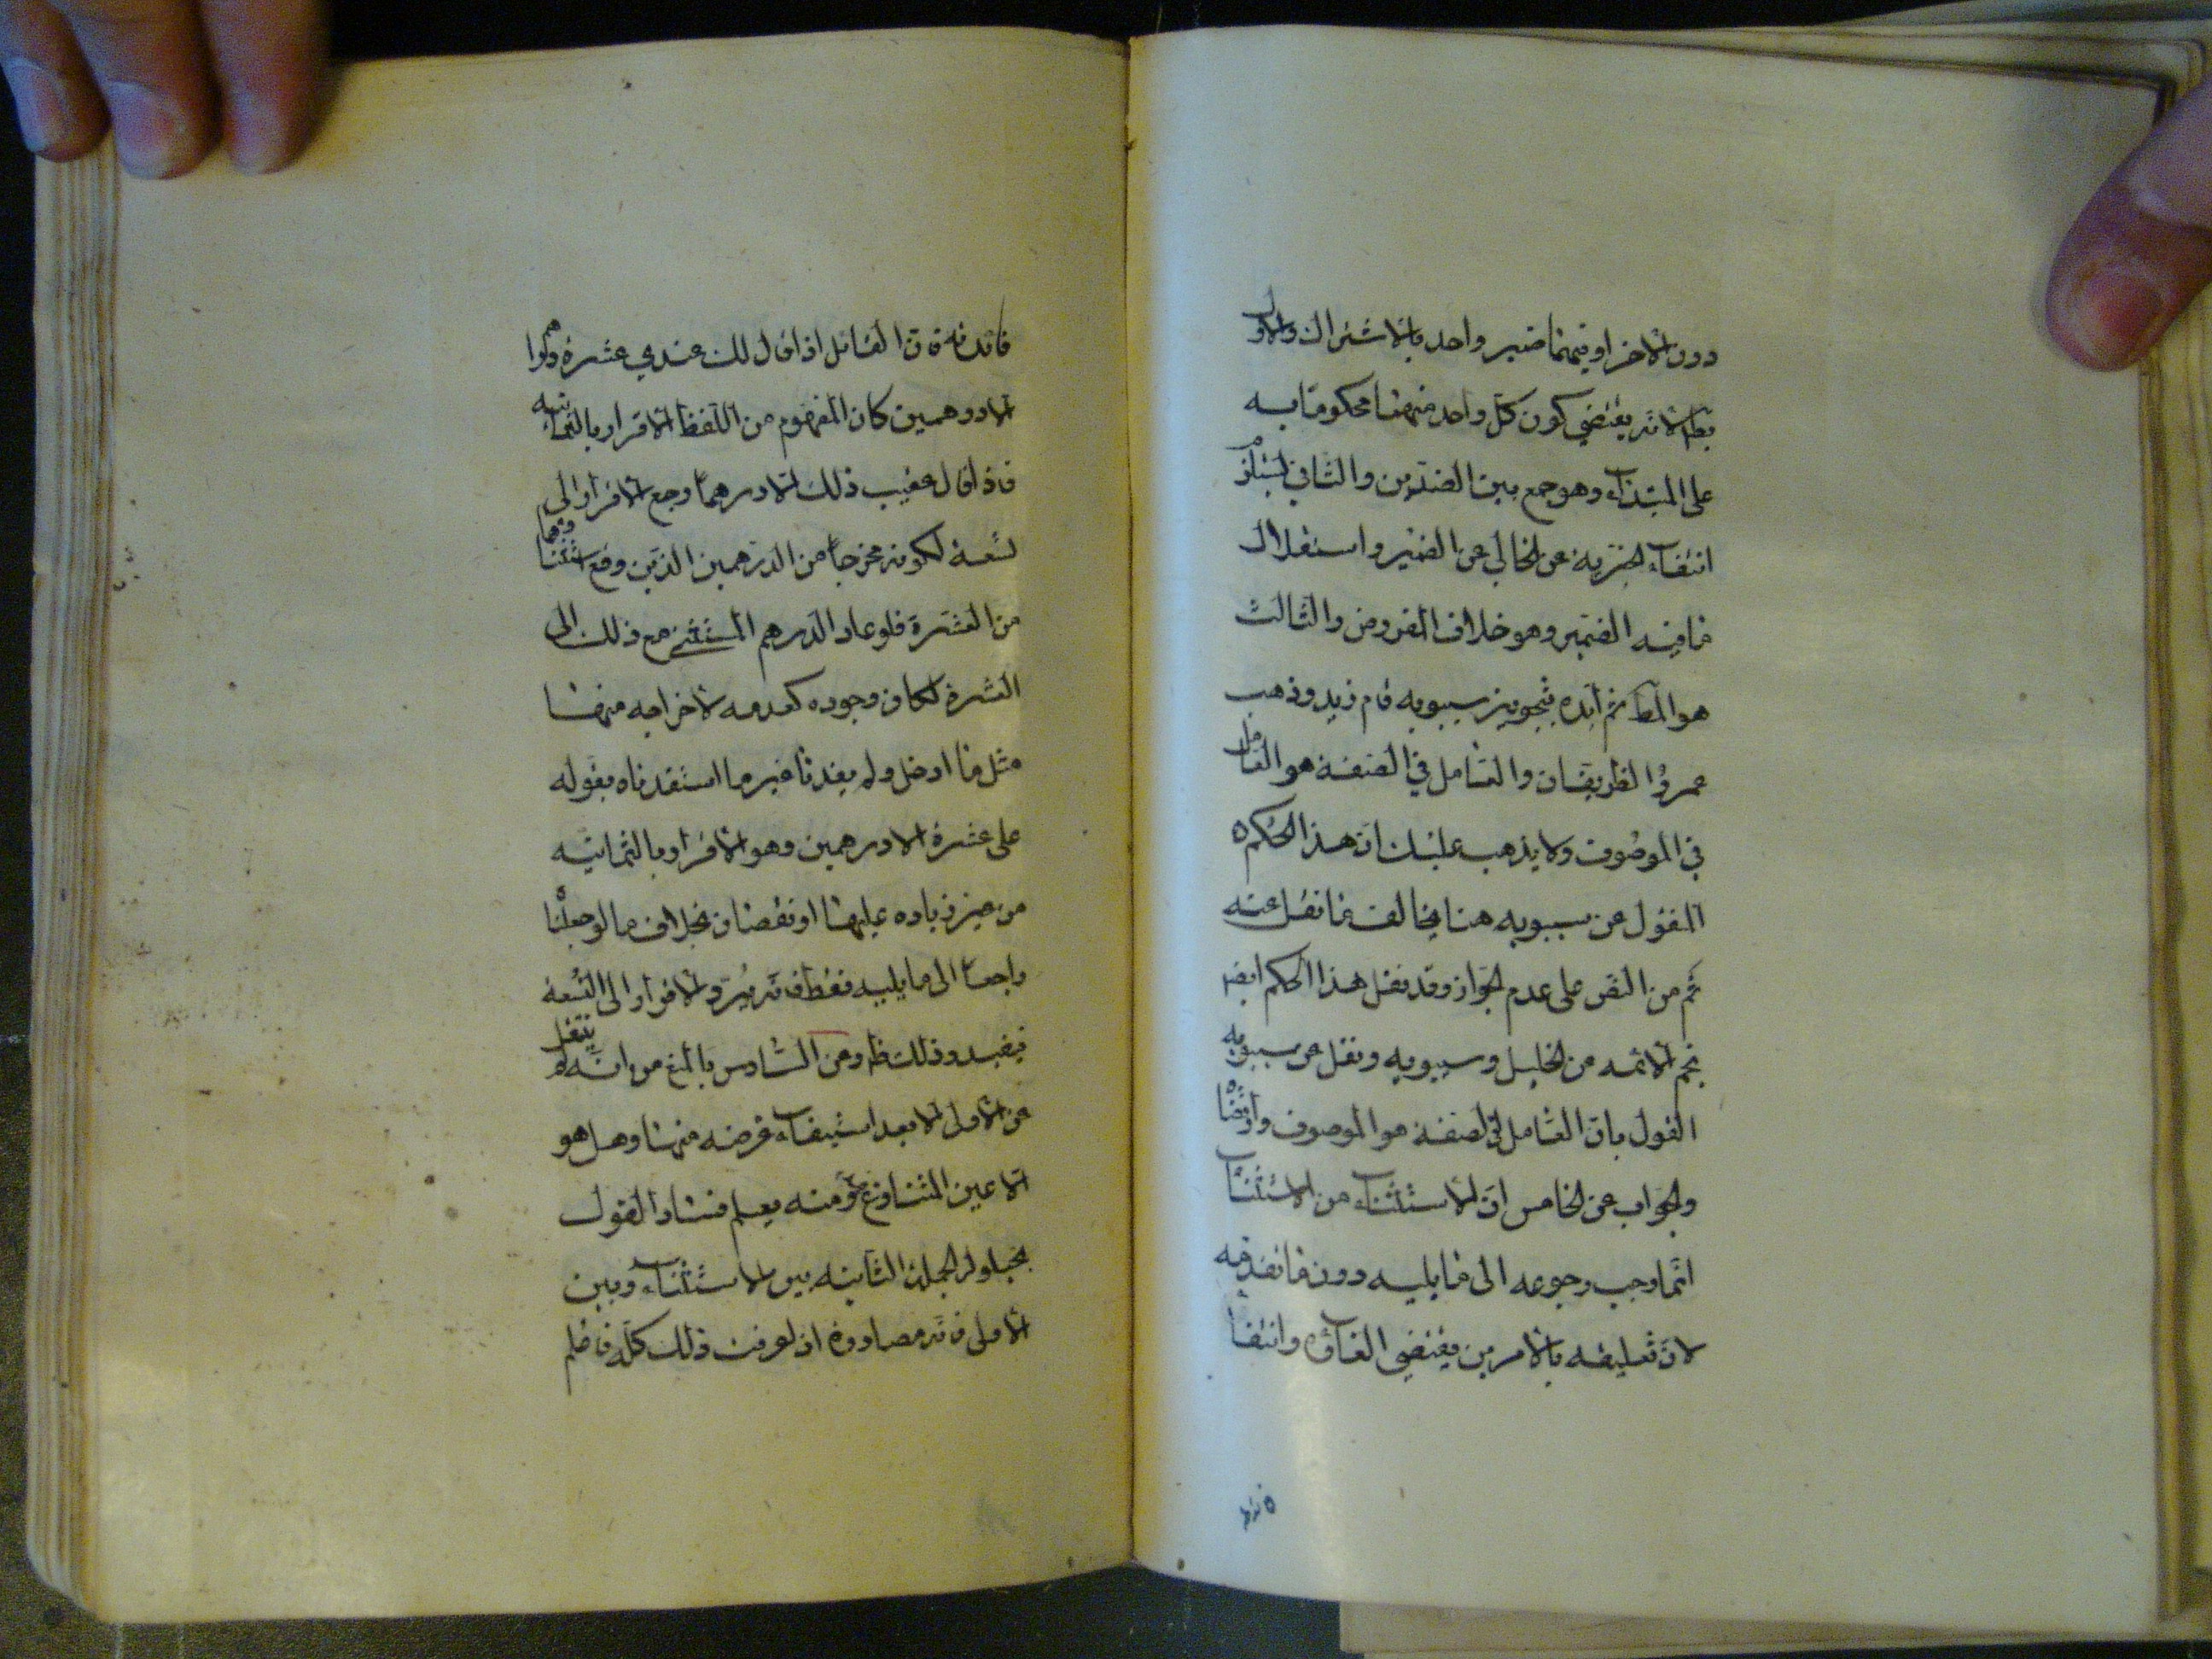 دون الاخر او فيهما ضمير واحد بالاشتراك والاول
بط لانه يقتضي كون كل واحد منهما محكوما به
على المبتداء وهو جمع بين الضدين والثاني يستلزم
انتفاء الخبريه عن الخالي عن الضمير واستقلال
ما فيه الضمير وهو خلاف المفروض والثالث
هو المط ثم ايده بتجويز سيبويه قام زيد وذهب
عمرو الظريفان والعامل في الصفة هو العامل
في الموصوف ولا يذهب عليك ان هذا الحكم
المنقول عن سيبويه هنا يخالف ما نقل عنه
ثم من النص على عدم الجواز وقد نقل هذا الحكم ايضا
نجم الائمه من الخليل وسيبويه ونقل عن سيبويه
القول بان العامل في الصفة هو الموصوف وارتضاه
والجواب عن الخامس ان الاستثناء من الاستثناء
انما وجب رجوعه الى ما يليه دون ما تقدمه
لان تعليقه بالامرين يقتضي الغائه وانتفاء
فائدته فان القائل اذا قال لك عندي عشرة دراهم
الا درهمين كان المفهوم من اللفظ الاقرار بالثمانيه
فاذا قال عقيب ذلك الا درهما رجع الاقرار الى
تسعة لكونه مخرجا من الدرهمين الذين وقع استثناؤهما
من العشرة فلو عاد الدرهم المستثنى مع ذلك الى
العشرة لكان وجوده كعدمه لاخراجه منها
مثل ما ادخل ولم يفدنا غير ما استفدناه بقوله
على عشرة الا درهمين وهو الاقرار بالثمانيه
من غير زياده عليها او نقصان بخلاف ما لو جعلنا
راجعا الى ما يليه فقط فانه يرد الاقرار الى التسعة
فيفيد وذلك ظ وعن السادس بالمنع من انه لم ينتقل
عن الاولى الا بعد استيفاء غرضه منها وهل هو
الا عين المتنازع فيه ومنه يعلم فساد القول
بحيلولة الجملة الثانيه بين الاستثناء وبين
الاولى فانه مصادرة اذا عرفت ذلك كله فاعلم